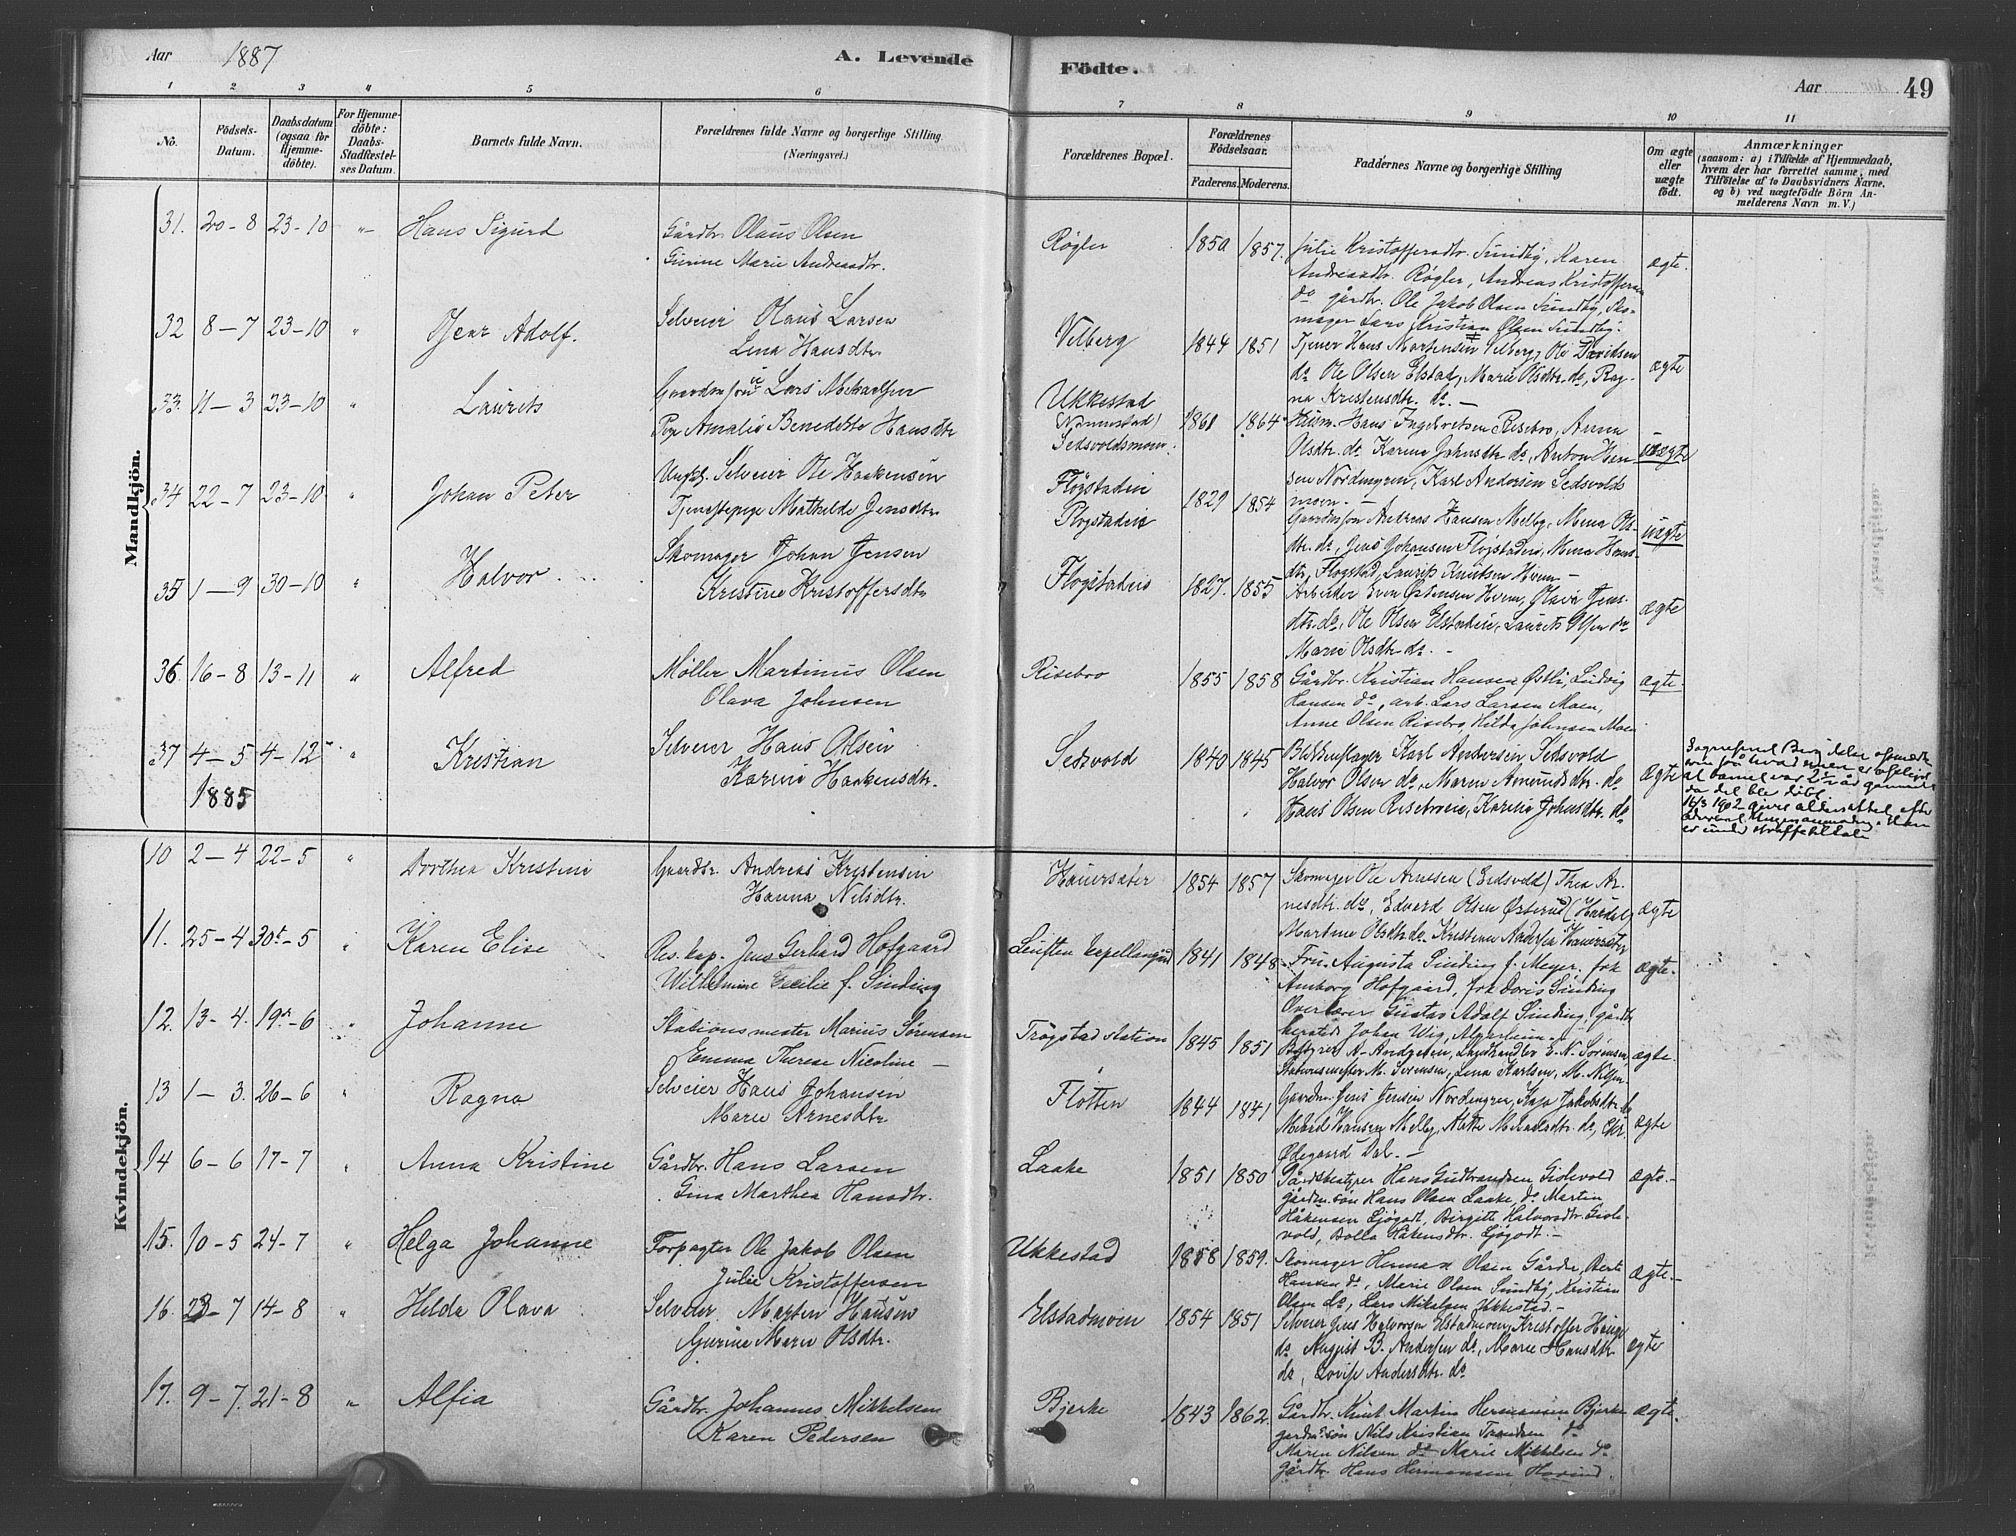 Aar 1887 A. Levende Födte. Aar 49
1 2 3 4 5 6 7 8 9 10 11
No.
Födsels-Datum.
Daabsdatum (ogsaa for Hjemme-döbte).
For Hjemme-döbte: Daabs-Stadfæstel-ses Datum.
Barnets fulde Navn.
Forældrenes fulde Navne og borgerlige Stilling. (Næringsvei.)
Forældrenes Bopæl.
Forældrenes Födselsaar. Faderens. Moderens.
Faddernes Navne og borgerlige Stilling
Om ægte eller uægte födt.
Anmærkninger
(saasom: a) i Tilfælde af Hjemmedaab,
hvem der har forrettet samme, med
Tilföielse af to Daabsvidners Navne,
og b) ved uægtefödte Börn An-
melderens Navn m. V.)
Mandkjön.
31. 20-8 23-10 "- Hans Sigurd
Gårdbr. Olaus Olsen
Gurine Marie Andreasdtr.
Røgler 1850 1857.
Julie Kristoffersdtr. Sundby, Karen
Andreasdtr. Røgler, Andreas Kristoffersen
do gårdbr. Ole Jakob Olsen Sundby, Sko-
mager Lars Kristian Olsen Sundby.
ægte.
32 8-7 23-10 " Adolf.
Selveier Olaus Larsen
Lena Hansdtr.
Velberg 1844 1851
Tjener Hans Mortensen Velberg, Ole Davidsen
do Ole Olsen Elstad, Marie Olsdtr. do, Rag-
na Kristensdtr. do. —
ægte
33. 11-3 23-10 " Laurits
Pige Amalie Benedikte Hansdtr
Ukkestad
Sedsvoldsmoen.
1861 1864
Husm. Hans Ingebretsen Risebro, Anna
Olsdtr. do Karen Johnsdtr do, Anton Hen
sen Nordengren, Karl Andersen Sedsvolds
moen. —
uægte
34 22-7 23-10 " Johan Peter
Ungk. Selveier Ole Haakensen
Tjenestepige Mathilde Jensdtr.
Flogstadeie
Flogstadeie
1829 1854
Gaardmsøn Andreas Hansen Melby, Mina Ols-
dtr. do, Jens Johansen Flogstadeie, Mina Hans-
dtr. Flogstad, Laurits Knutsen Hvam —
uægte
35 1-9 30-10 " Halvor.
Skomager Johan Jensen
Kristine Kristoffersdtr
Flogstadeie 1827. 1855
Arbeider Even Østensen Hvam, Olava Jens-
dtr. do, Ole Olsen Elstadeie, Laurits Olsen do
Marie Olsdtr do. —
ægte
36. 16-8 13-11 " Alfred
Møller Martinus Olsen
Olava Johnsen
Risebro 1855 1858
Gårdbr. Kristian Hansen Østli, Ludvig
Hansen do, arb. Lars Larsen Moen,
Anne Olsen Risebro Hilda Johnsen Moen
ægte.
37 4-5 4-12 " Kristian
1885
Selveier Hans Olsen
Karine Haakensdtr.
Sedsvold 1840 1845
Karl Andersen Sedsvold
Halvor Olsen do, Maren Amundsdtr. do
Hans Olsen Risebroeie, Karine Johnsdtr. do
ægte
at barnet var 2½ år gammelt
da det ble döbt
Kvindekjön.
10 2-4 22-5 " Dorthea Kristine
Gaardbr. Andreas Kristensen
Hanna Nilsdtr.
Hauersæter 1854 1857
Skomager Ole Arnesen (Eidsvold) Thea Ar-
nesdtr. do, Edvard Olsen Østerud (Hurdal)
Martine Olsdtr do. Kristine Andersen Hauersæter
ægte
11. 25-4 30te-5 " Karen Elise
Res. kap. Jens Gerhard Hofgaard
Wilhelmine Cecilie f. Sinding
Kapellangård 1841 1848
Fru. Augusta Sinding f. Meyer. frk
Amborg Hofgaard, frk Doris Sinding
Overlærer Gustav Adolf Sinding, gårdbr
Johan Wig, Algarheim.
ægte.
12. 13-4. 19de-6 " Johanne
Stationsmester Marius Sørensen
Emma Therese Nicoline —
Trøgstad station 1845 1851
A. Andresen, Landhandler E. N. Sørensen,
Stationsmester M. Sørensen, Lena Karlsen, M. Nilsen
ægte.
13 1-3. 26-6 " Ragna
Selveier Hans Johansen
Marie Arnesdtr
Flotten 1844 1841
Gaardm. Jens Jensen Nordengren, Kaja Jakobsdtr. do
Hansen Melby,
Ødegaard Dal. —
ægte
14 6-6 17-7 " Anna Kristine
Gårdbr. Hans Larsen
Gina Marthea Hansdtr.
Laake 1851 1850
Gårdbestyrer Hans Gudbrandsen Gislevold
gårdm.søn Hans Olsen Laake, do Martin
Håkensen Ljøgodt, Birgitte Halvorsdtr. Gisle-
vold, Bolla Håkensdtr. Ljøgodt. —
ægte. —
15. 10-5 24-7 " Helga Johanne
Forpagter Ole Jakob Olsen
Julie Kristoffersen
Ukkestad 1858 1859.
Skomager Herman Olsen Gårder, Bert
Hansen do, Marie Olsen Sundby, Kristian
Olsen do, Lars Mikalsen Ukkestad. —
ægte. —
16. 23-7 14-8 " Hilda Olava
Selveier. Morten Hansen
Gurine Marie Olsdtr.
Elstadmoen 1854 1851
Selveier Jens Halvorsen Elstadmoen, Kristoffer
do August B. Andersen do, Marie Hansdtr
do, Lovise Andersdtr. do
ægte
17. 9-7. 21-8 " Alfia
Gårdbr. Johannes Mikkelsen
Karen Pedersen
Bjerke 1843 1862.
Gårdbr. Knut Martin Hermansen Bjerke
gardm.søn Nils Kristian Trondsen do
Maren Nilsen do Marie Mikkelsen do
Gårdbr. Hans Hermansen Hovind.
ægte.